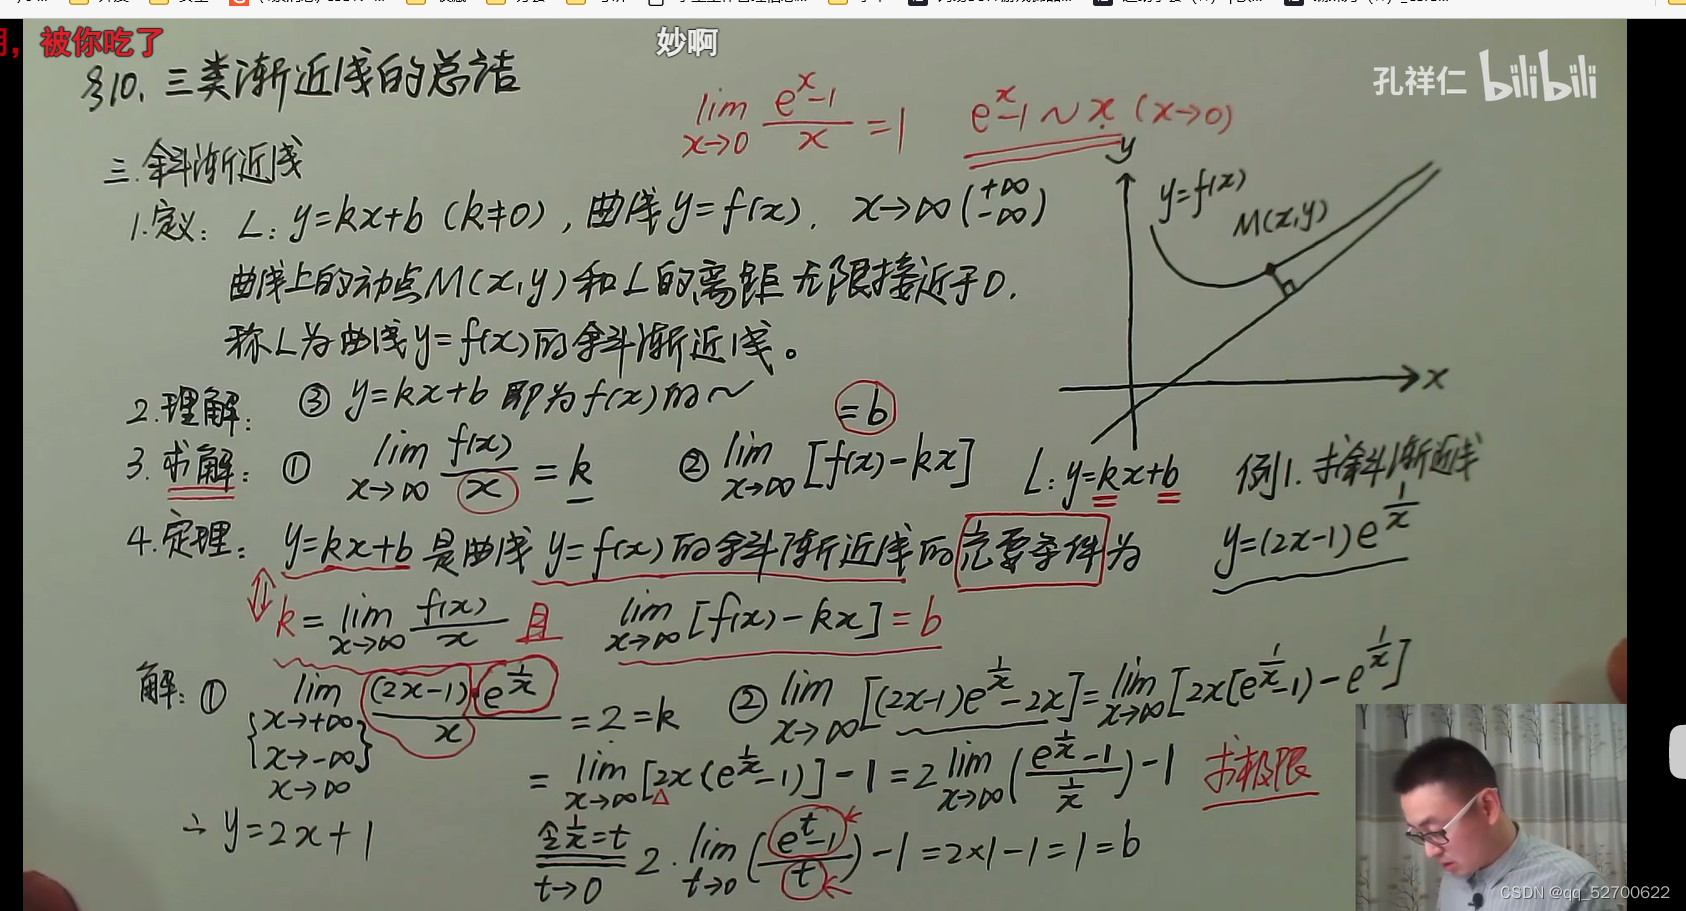 被你吃了
妙啊
孔祥仁 bilibili
§10. 三类渐近线的总结
lim x→0 (e^x-1)/x = 1   e^x-1 ~ x (x→0)
三. 斜渐近线
1. 定义: L: y=kx+b (k≠0), 曲线 y=f(x). x→∞ (+∞ -∞)
曲线上的动点M(x,y)和L的离距无限接近于0.
称L为曲线y=f(x)的斜渐近线。
y
y=f(x)
M(x,y)
x
2. 理解: ③ y=kx+b 即为f(x)的~
3. 求解: ① lim x→∞ f(x)/x = k   ② lim x→∞ [f(x)-kx] =b   L: y=kx+b
例1. 求斜渐近线
y=(2x-1)e^(1/x)
4. 定理: y=kx+b 是曲线 y=f(x) 的斜渐近线的充要条件为
⇕ k = lim x→∞ f(x)/x 且 lim x→∞ [f(x)-kx] = b
解: ① lim {x→+∞ x→-∞} x→∞ (2x-1)·e^(1/x)/x = 2 = k
② lim x→∞ [(2x-1)e^(1/x)-2x] = lim x→∞ [2x(e^(1/x)-1)-e^(1/x)]
= lim x→∞ [2x(e^(1/x)-1)]-1 = 2 lim x→∞ ((e^(1/x)-1)/(1/x))-1   求极限
令1/x=t t→0 2·lim t→0 ((e^t-1)/t)-1 = 2×1-1 = 1 = b
∴ y=2x+1
CSDN @qq_52700622